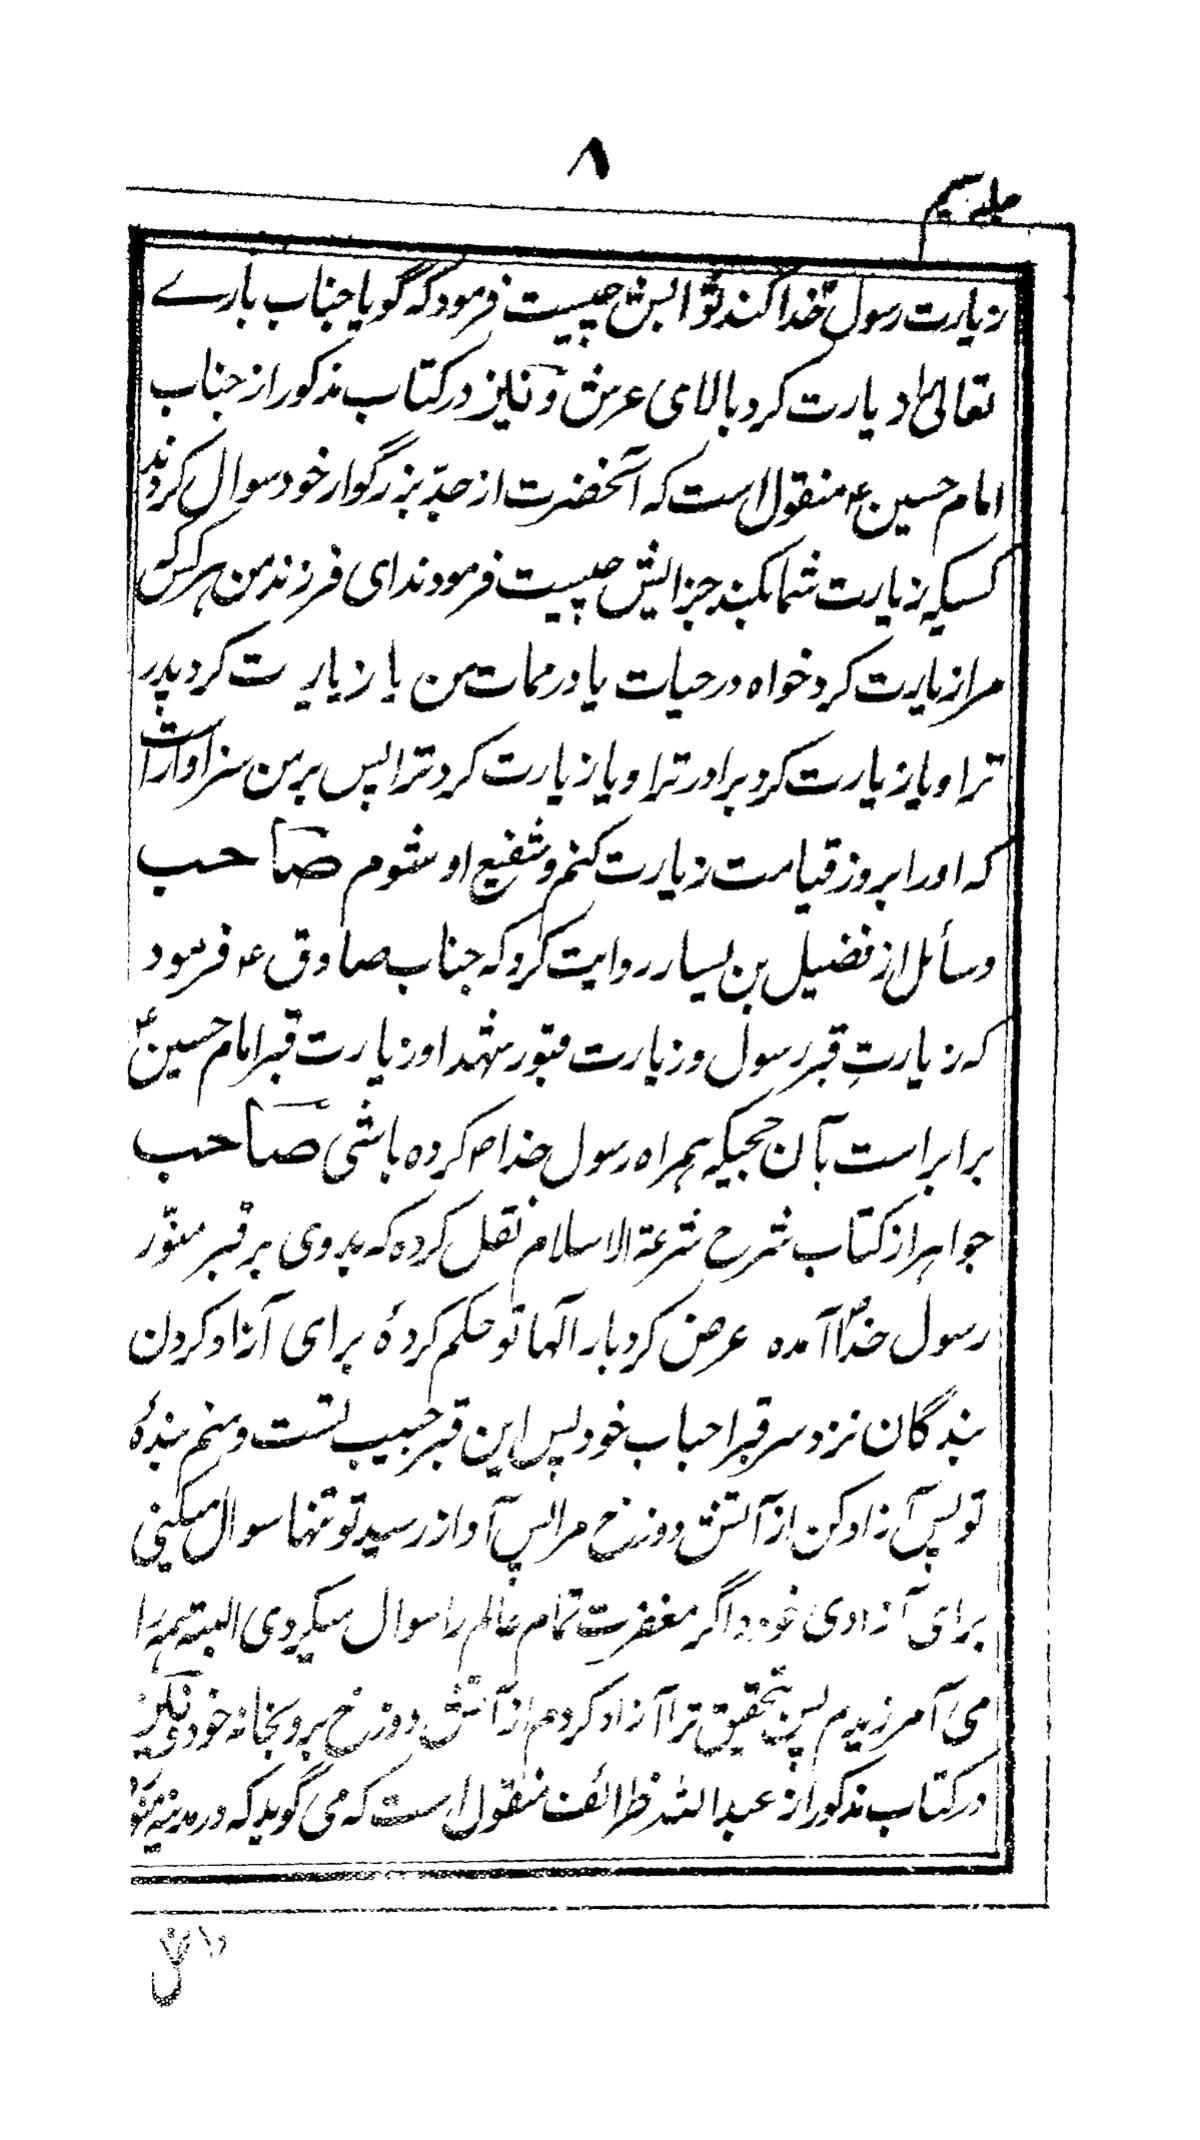 ۸
جلد سیم
زیارت رسول خدا کند ثوابش چیست فرمود که گویا جناب بارے
تعالیٰ را زیارت کرد بالای عرش و نیز در کتاب مذکور از جناب
امام حسین ع منقول است که آنحضرت از جدّ بزرگوار خود سوال کردند
کسیکه زیارت شما بکند جزایش چیست فرمودند ای فرزند من هر کس که
مرا زیارت کرد خواه در حیات یا در ممات من یا زیارت کرد پدر
ترا و یا زیارت کرد برادر ترا و یا زیارت کرد ترا پس بر من سزاوار است
که او را بروز قیامت زیارت کنم و شفیع او شوم صاحب
وسائل از فضیل بن یسار روایت کرد که جناب صادق ع فرمود
که زیارتِ قبر رسول و زیارت قبور شهدا و زیارت قبر امام حسین ع
برابر است بآن حجیکه همراه رسول خدا ص کرده باشی صاحب
جواهر از کتاب شرح شرعة الاسلام نقل کرده که بدوی بر قبر منوّر
رسول خدا آمده عرض کرد بار الٰها تو حکم کردهٔ برای آزاد کردن
بندگان نزد سر قبر احباب خود پس این قبر حبیب تست و منم بندهٔ
تو پس آزاد کن از آتش دوزخ مرا پس آواز رسید تو تنها سوال میکنی
برای آزادی خود و اگر مغفرتِ تمام عالم را سوال میکردی البته همه را
می آمرزیدم پس بتحقیق ترا آزاد کردم از آتش دوزخ برو بخانه خود و نیز
در کتاب مذکور از عبد الله ظرائف منقول است که می گوید که در مدینه منوّره